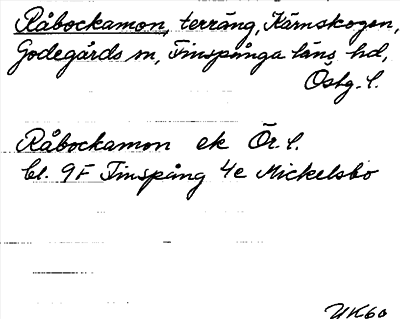 Råbockamon, terräng, Kärnskogen,
Godegårds sn, Finspånga läns hd,
Östg. l.
Råbockamon ek Ör. l.
bl. 9F Finspång 4e Mickelsbo
UK60